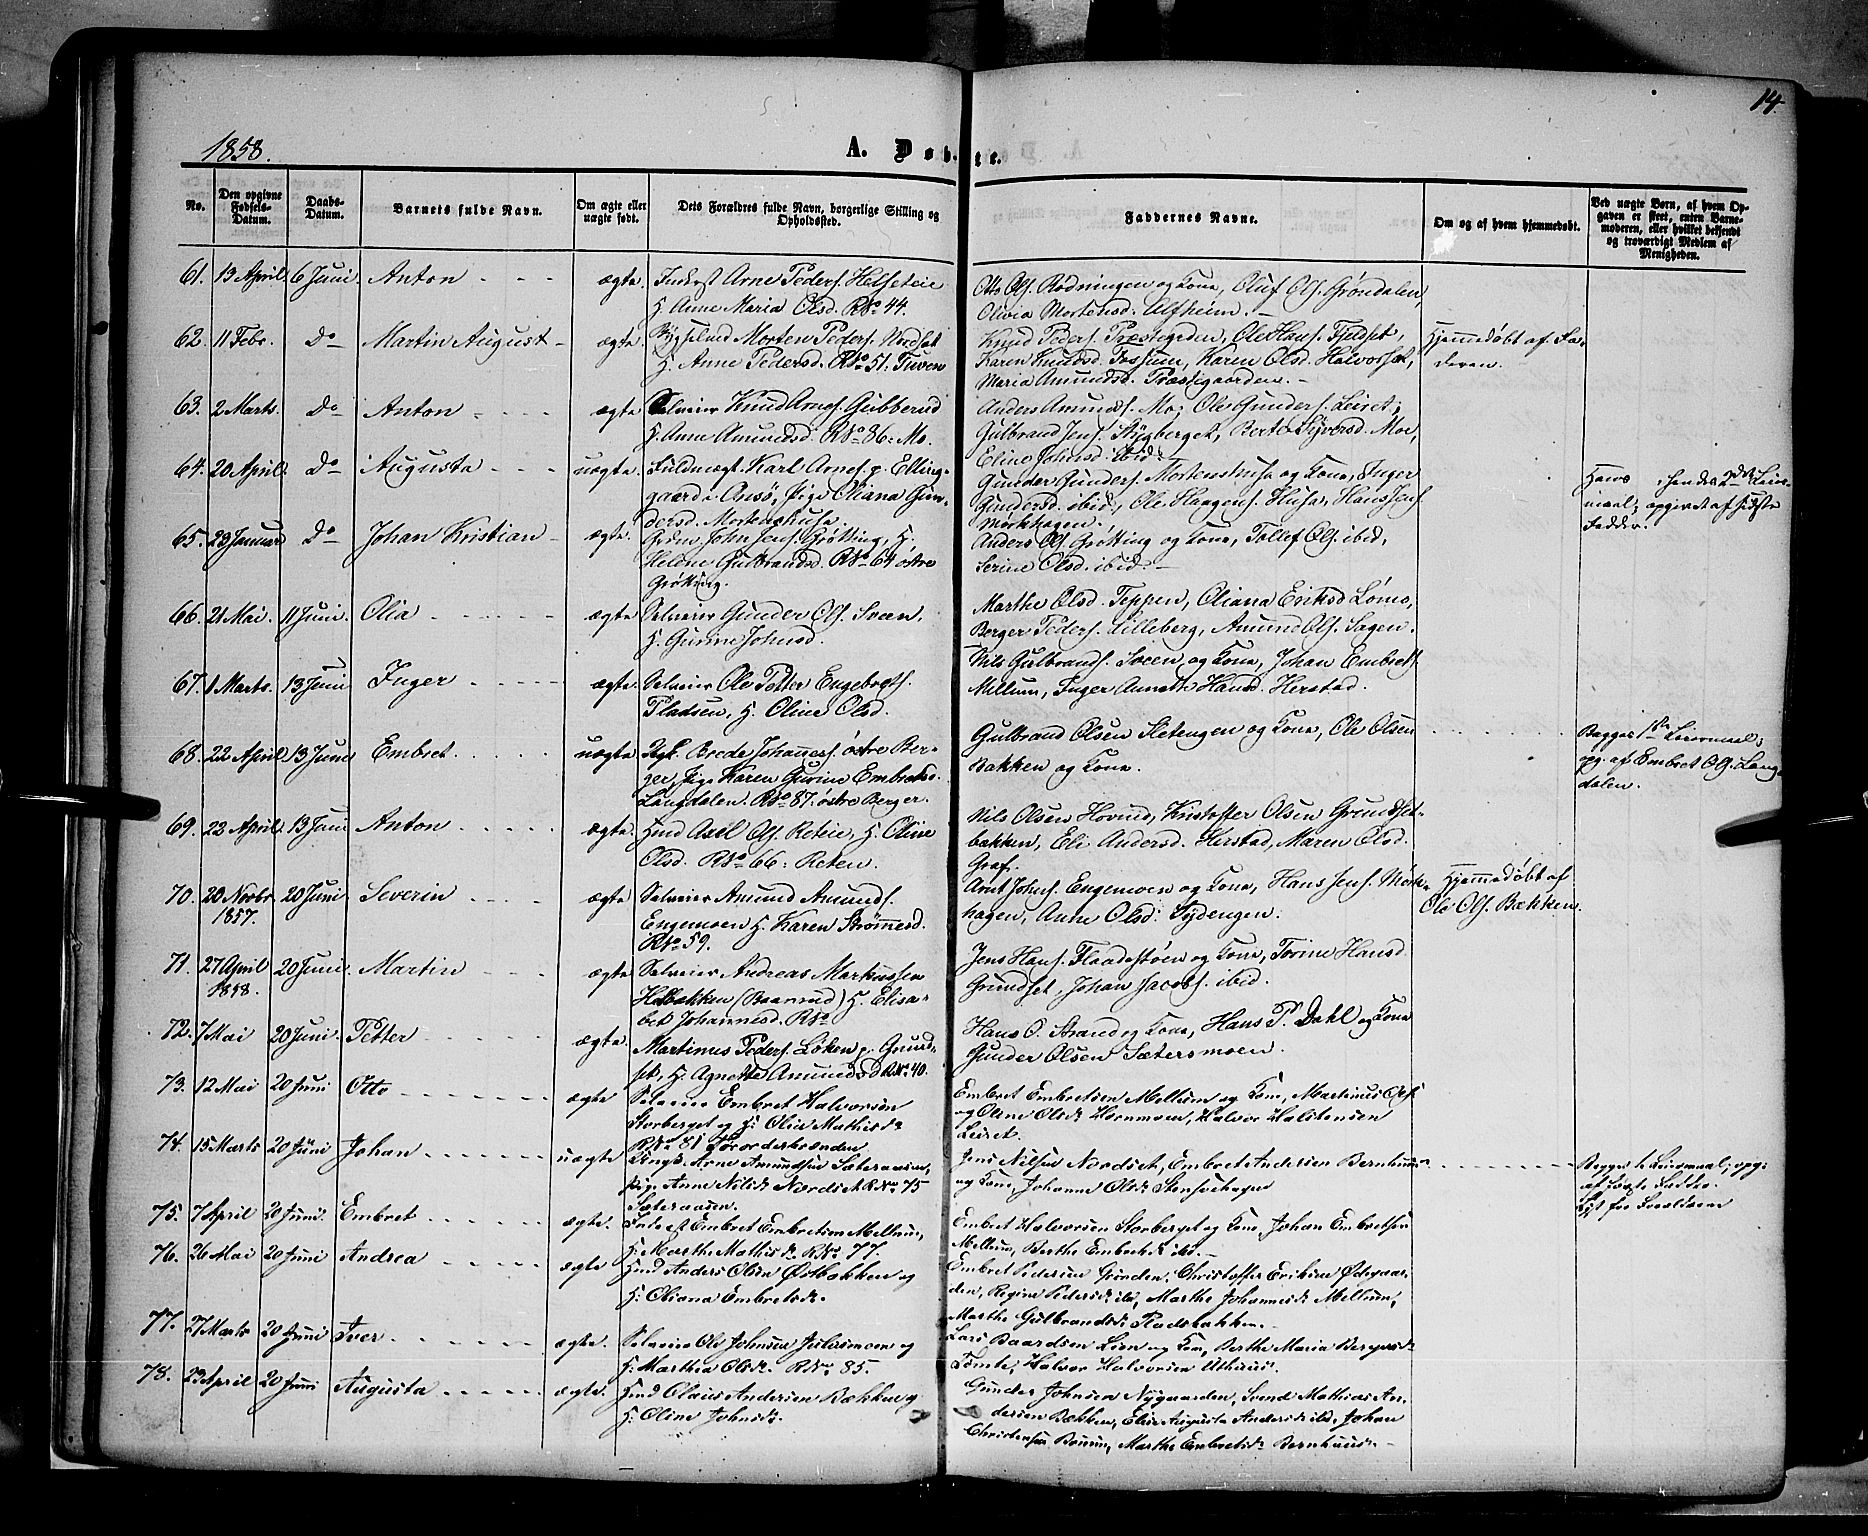 14.
1858.
A. Døbte.
No.
Den opgivne Fødsels-Datum.
Daabs-Datum.
Barnets fulde Navn.
Om ægte eller uægte født.
Dets Forældres fulde Navn, borgerlige Stilling og Opholdssted.
Faddernes Navne.
Om og af hvem hjemmedøbt.
Ved uægte Børn, af hvem Opgaven er skeet, enten Barnemoderen, eller hvilket bekjendt og troværdigt Medlem af Menigheden.
61. 13 April 6 Juni Anton ægte Arne Peders. Helseteie
H. Anne Maria Olsd. R.No 44.
Otto Ols. Rødningen og Kone, Oluf Ols. Grøndalen,
Olivia Mortensd. Ulfheim.
62. 11 Febr. Do Martin August ægte Bygselmd Morten Peders. Nordset
H. Anne Pedersd. R.No 51. Tuven
Knud Peders. Præstegrden, Ole Hans. Fjeldset,
Karen Knudsd. Fossum, Karen Olsd. Halvorset,
Maria Amundsd. Præstegaarden.
Hjemmedøbt af Faderen.
63. 2 Marts. Do Anton ægte Selveier Knud Arnes. Gubberud
H. Anne Amundsd. R.No 86. Mo.
Anders Amunds. Mo, Ole Gunders. Leiret,
Gulbrand Jens. Stygberget, Berte Syversd. Moe,
Eline Johnsd. ibid.
64. 20 April Do Augusta uægte Fuldmægt. Karl Arnes. p. Ellinggaard i Ansø, Pige Oliana Gundersd. Mortenshusa.
Gunder Gunders. Mortenshusa og Kone, Inger
Gundersd. ibid, Ole Haagens. Husa, Hans Jens.
Mørkhagen.
Hans , hendes 2det Leiermaal; opgivet af sidste
Fadder.
65. 23 Januar Do Johan Kristian ægte John Jens. Grøtting, H.
Helene Gulbrandsd. R.No 64 østre
Grøtting.
Anders Ols. Grøtting og Kone, Tollef Ols. ibid,
Serine Olsd. ibid.
66. 21 Mai 11 Juni. Olia ægte Selveier Gunder Ols. Sveen,
H. Gurine Johnsd.
Marthe Olsd. Teppen, Oliana Eriksd. Lømo,
Berger Peders. Lilleberg, Amund Ols. Sagen.
67. 1 Marts. 13 Juni Inger ægte Selveier Ole Petter Engebrets.
Pladsen, H. Oline Olsd.
Nils Gulbrands. Sveen og Kone, Johan Embrets.
Mellum, Inger Annette Hansd. Herstad.
68. 22 April 13 Juni Embret uægte Ungk. Brede Johannes. østre Berger, Pige Karen Gurine Embretsd.
Langdalen. R.No 87. østre Berger.
Gulbrand Olsen Sletengen og Kone, Ole Olsen
Bakken og Kone.
Begges 1ste Leiermaal;
opg. af Embret Ols. Langdalen.
69. 22 April 13 Juni Anton ægte Hmd Axel Ols. Reteie, H. Oline
Olsd. R.No 66. Reten.
Nils Olsen Hovind, Kristoffer Olsen Grundsetbakken, Eli Andersd. Herstad, Maren Olsd.
Graf.
70. 20 Novbr 1857. 20 Juni Severin ægte Selveier Amund Amunds.
Engemoen H. Karen Strømesd.
R.No 59.
Arnt Johns. Engemoen og Kone, Hans Jens. Mørkhagen, Anne Olsd. Sydengen.
Hjemmedøbt af
Ole Ols. Bækken.
71. 27 April 1858. 20 Juni. Martin ægte Selveier Andreas Markussen
Holbakken (Baanrud) H. Elisabet Johannesd. R.No
Jens Hans. Flaadestøen og Kone, Torine Hansd.
Grundset, Johan Jacobs. ibid.
72. 7 Mai 20 Juni. Petter ægte Martinus Peders. Løken p. Grundset, H. Agnette Amundsd R.No 40.
Hans O. Strand og Kone, Hans P. Dahl og Kone
Gunder Olsen Sætersmoen.
73. 12 Mai 20 Juni Otto ægte Selveier Embret Halvorsen
Storberget og H. Olia Mathisdr
R.No 81
Embret Embretsen Mellum og Kone, Martinus Ols.
og Oline Olsdr Hornmoen, Halvor Halstensen
Leiret.
74. 15 Marts 20 Juni Johan uægte Ungk. Arne Amundsen Sæteraasen,
Pige Anne Nilsdr Nordset R.No 75
Sæteraasen.
Jens Nilsen Nordset, Embret Andersen Bernhuus
og Kone, Johanne Olsdr Stensethagen
Begges 1. Leiermaal; opg.
af første Fadder.
75. 7 April 20 Juni. Embret ægte Inderst Embret Embretsen Mellum,
H. Marthe Mathisdr R.No 77.
Embret Halvorsen Storberget og Kone, Johan Embretsen
Mellum, Berthe Embretsdr ibd.
76. 26 Mai 20 Juni Andrea ægte Hmd Anders Olsen Østbækken og
H. Oliana Embretsdr.
Embret Pedersen Grinden, Christoffer Eriksen Ødegaarden, Regine Pedersdr ibd, Marthe Johannesdr Mellum,
Marthe Gulbrandsdr Pladsbakken.
77. 27 Marts 20 Juni Iver ægte Selveier Ole Johnsen Julusmoen og
H. Marthea Olsdr R.No 85.
Lars Baardsen Lien og Kone, Berthe Maria Bergersdr
Tomte, Halvor Halvorsen Uthuus.
78. 23 April 20 Juni Augusta ægte. Hmd Olaus Andersen Bækken og
H. Oline Johnsdr.
Gunder Johnsen Nygaarden, Svend Mathias Andersen Bækken, Elise Augusta Andersdr ibd, Johan
Christensen Bruun, Marthe Embretsdr Bernhuus.